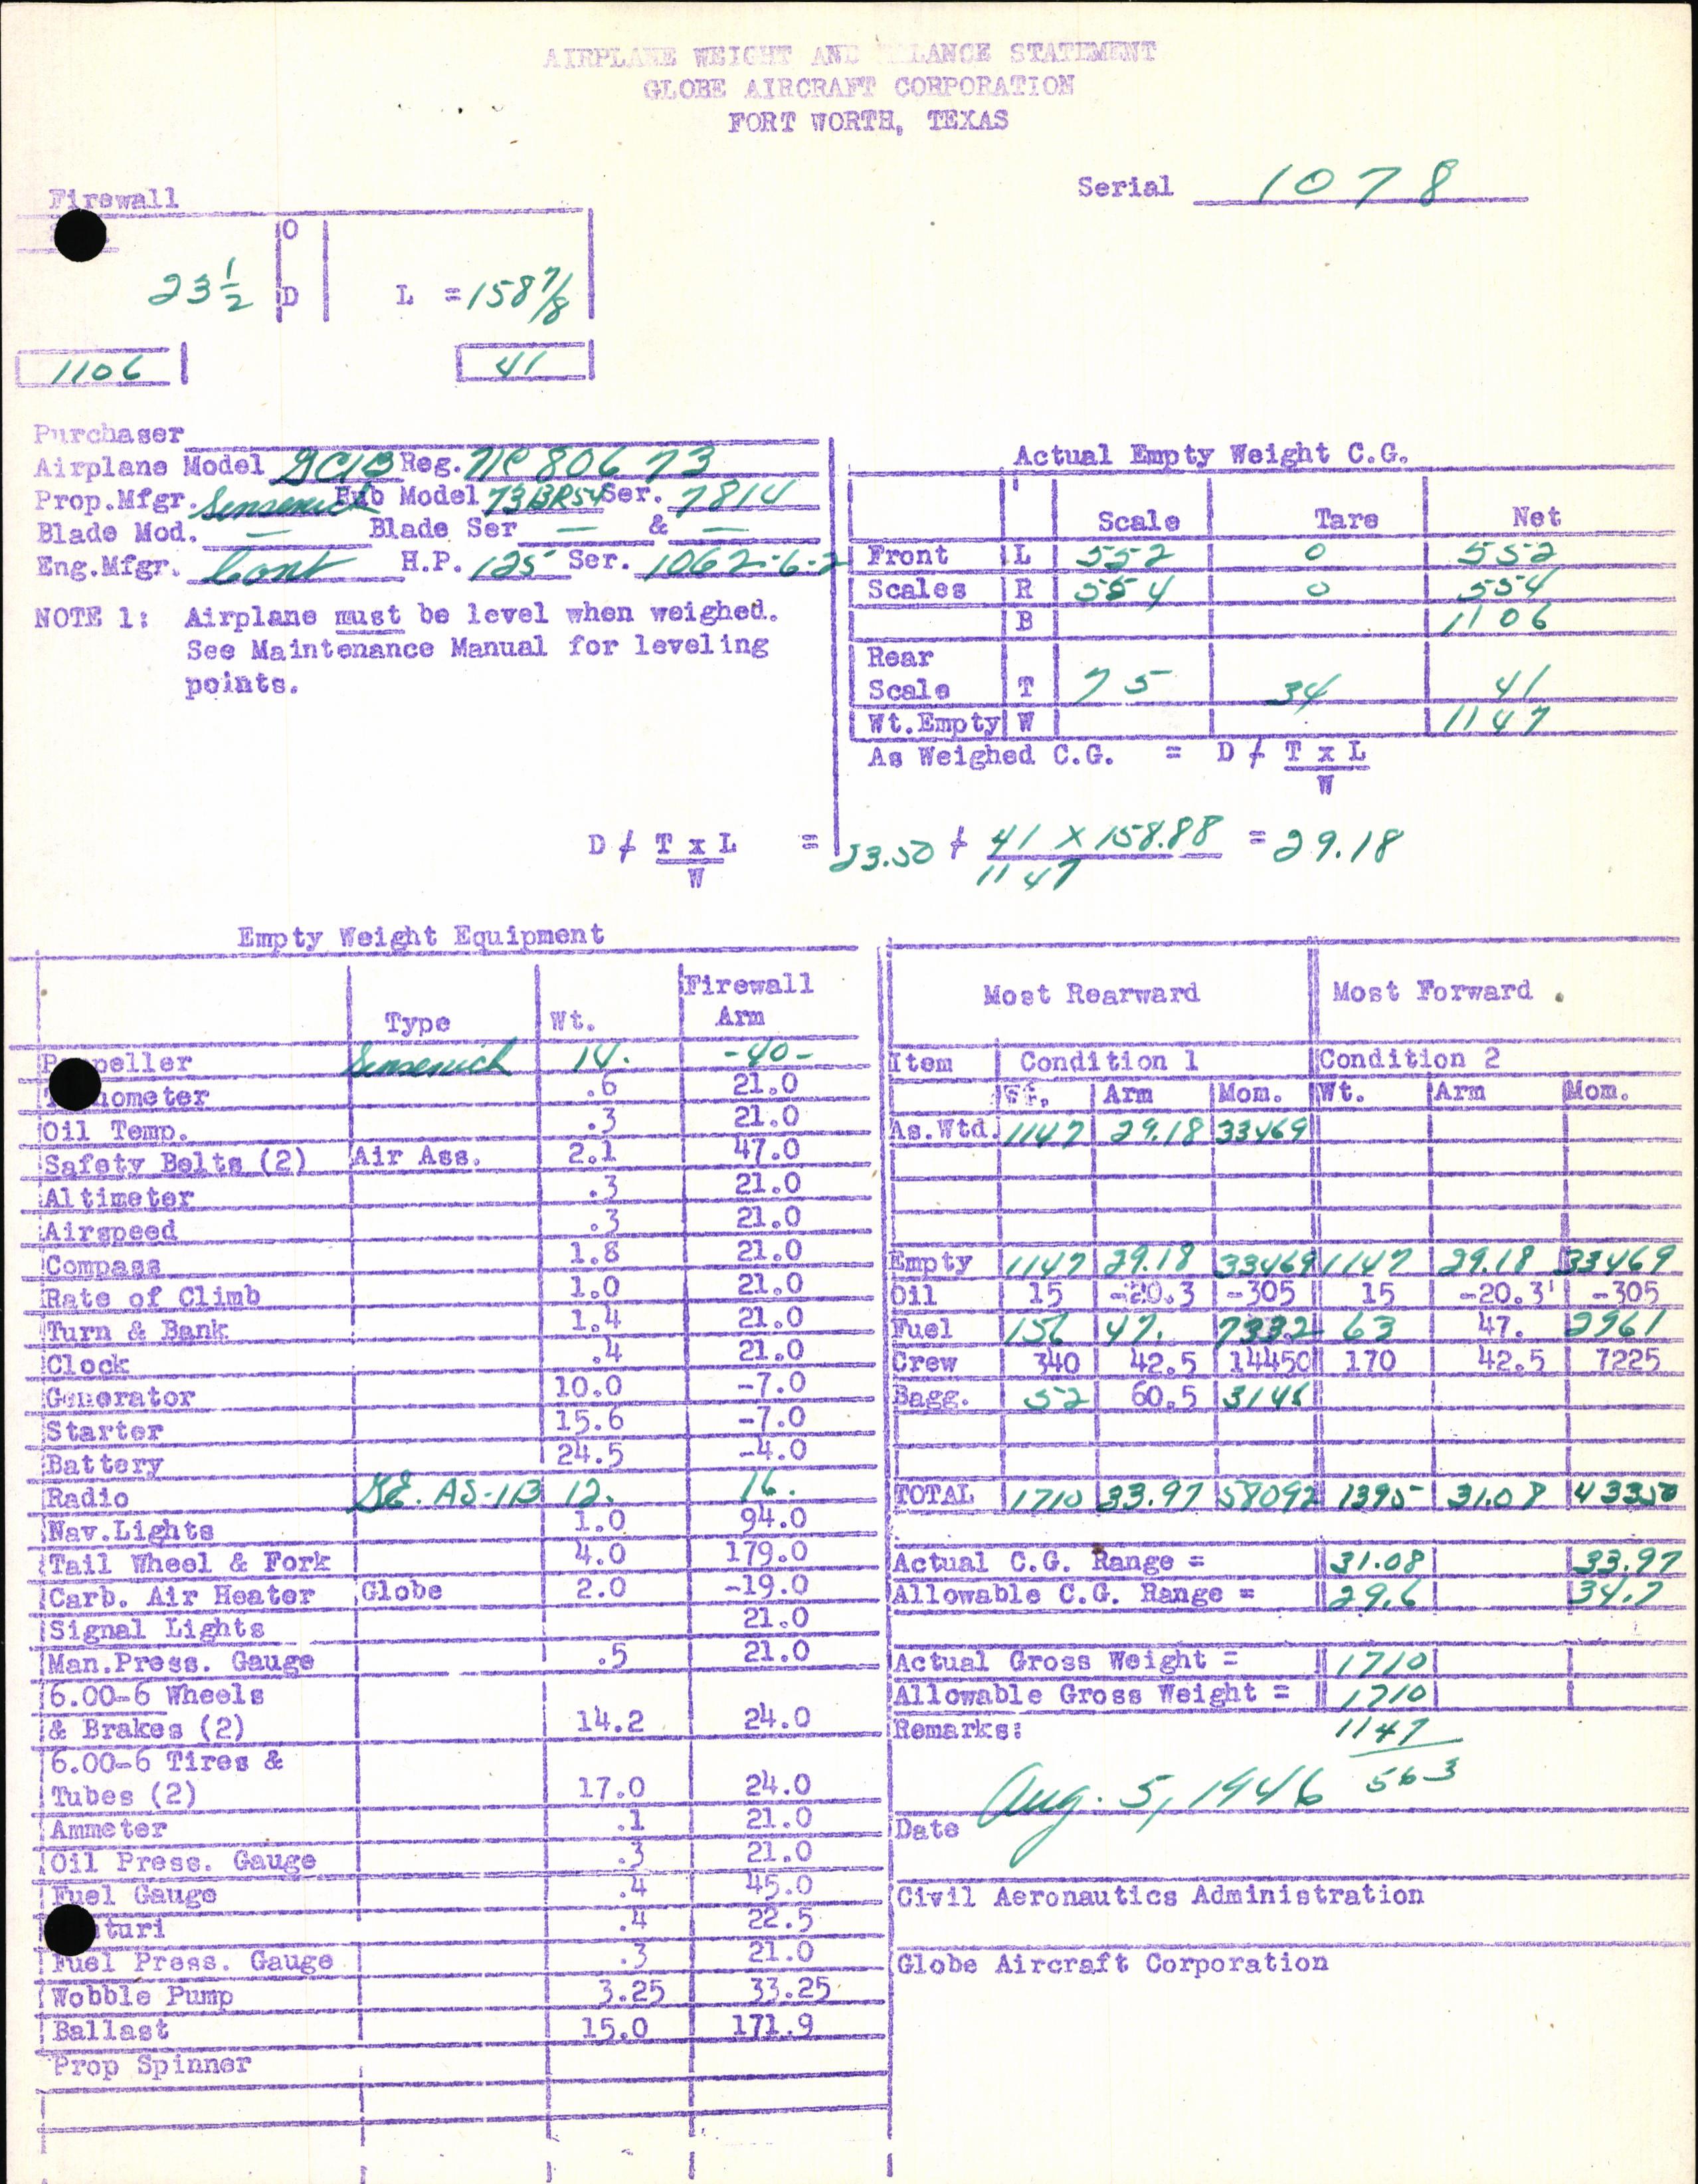 AIRPLANE WEIGHT AND BALANCE STATEMENT
GLOBE AIRCRAFT CORPORATION
FORT WORTH, TEXAS
Serial 1078
Firewall
O
23 1/2 D L = 158 7/8
1106 41
Purchaser
Airplane Model GC1B Reg. NC 80673
Prop.Mfgr. Sensenich Hub Model 73BR54 Ser. 7814
Blade Mod. — Blade Ser — & —
Eng.Mfgr. Cont H.P. 125 Ser. 1062-6-2
NOTE 1: Airplane must be level when weighed.
See Maintenance Manual for leveling
points.
Actual Empty Weight C.G.
Scale Tare Net
Front L 552 0 552
Scales R 554 0 554
B 1106
Rear
Scale T 75 34 41
Wt.Empty W 1147
As Weighed C.G. = D + T x L
W
D + T x L = 23.50 + 41 x 158.88 = 29.18
W 1147
Empty Weight Equipment
Type Wt. Firewall Arm
Propeller Sensenich 14. -40-
Tachometer .6 21.0
Oil Temp. .3 21.0
Safety Belts (2) Air Ass. 2.1 47.0
Altimeter .3 21.0
Airspeed .3 21.0
Compass 1.8 21.0
Rate of Climb 1.0 21.0
Turn & Bank 1.4 21.0
Clock .4 21.0
Generator 10.0 -7.0
Starter 15.6 -7.0
Battery 24.5 -4.0
Radio G.E. AS-1B 12. 16.
Nav.Lights 1.0 94.0
Tail Wheel & Fork 4.0 179.0
Carb. Air Heater Globe 2.0 -19.0
Signal Lights 21.0
Man.Press. Gauge .5 21.0
6.00-6 Wheels
& Brakes (2) 14.2 24.0
6.00-6 Tires &
Tubes (2) 17.0 24.0
Ammeter .1 21.0
Oil Press. Gauge .3 21.0
Fuel Gauge .4 45.0
Venturi .4 22.5
Fuel Press. Gauge .3 21.0
Wobble Pump 3.25 33.25
Ballast 15.0 171.9
Prop Spinner
Most Rearward Most Forward
Item Condition 1 Condition 2
Wt. Arm Mom. Wt. Arm Mom.
As.Wtd. 1147 29.18 33469
Empty 1147 29.18 33469 1147 29.18 33469
Oil 15 -20.3 -305 15 -20.3 -305
Fuel 156 47. 7332 63 47. 2961
Crew 340 42.5 14450 170 42.5 7225
Bagg. 52 60.5 3146
TOTAL 1710 33.97 58092 1395 31.08 43350
Actual C.G. Range = 31.08 33.97
Allowable C.G. Range = 29.6 34.7
Actual Gross Weight = 1710
Allowable Gross Weight = 1710
Remarks: 1147
563
Date Aug. 5, 1946
Civil Aeronautics Administration
Globe Aircraft Corporation